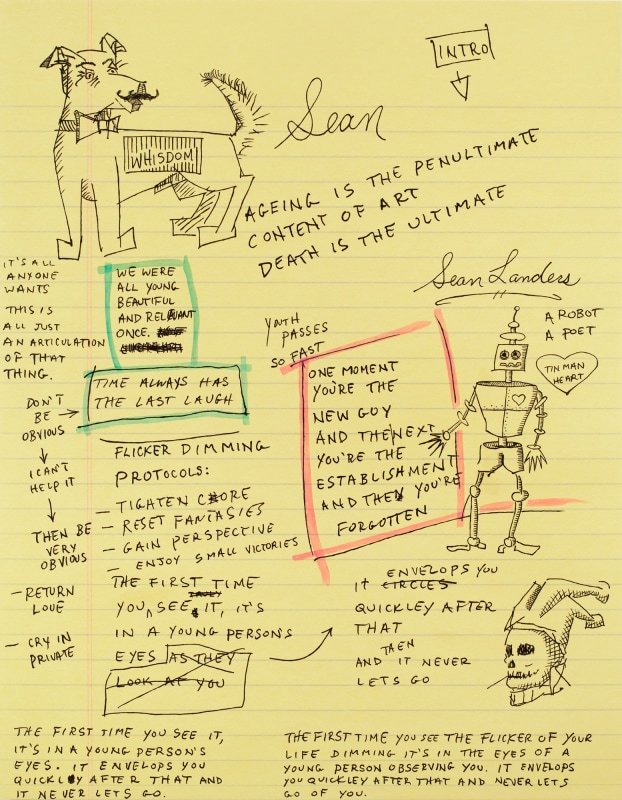 INTRO
Sean
WHISDOM
AGEING IS THE PENULTIMATE
CONTENT OF ART
DEATH IS THE ULTIMATE
IT'S ALL
ANYONE
WANTS
THIS IS
ALL JUST
AN ARTICULATION
OF THAT
THING.
WE WERE
ALL YOUNG
BEAUTIFUL
AND RELAVANT
ONCE.
TIME ALWAYS HAS
THE LAST LAUGH
DON'T
BE
OBVIOUS
I CAN'T
HELP IT
THEN BE
VERY
OBVIOUS
— RETURN
LOVE
— CRY IN
PRIVATE
FLICKER DIMMING
PROTOCOLS:
— TIGHTEN CORE
— RESET FANTASIES
— GAIN PERSPECTIVE
— ENJOY SMALL VICTORIES
THE FIRST TIME
YOU SEE IT, IT'S
IN A YOUNG PERSON'S
EYES AS THEY
LOOK AT YOU
Sean Landers
A ROBOT
A POET
TIN MAN
HEART
YOUTH
PASSES
SO FAST
ONE MOMENT
YOU'RE THE
NEW GUY
AND THE NEXT
YOU'RE THE
ESTABLISHMENT
AND THEN YOU'RE
FORGOTTEN
ENVELOPS YOU
IT CIRCLES
QUICKLEY AFTER
THAT
THEN
AND IT NEVER
LETS GO
THE FIRST TIME YOU SEE IT,
IT'S IN A YOUNG PERSON'S
EYES. IT ENVELOPS YOU
QUICKLY AFTER THAT AND
IT NEVER LETS GO.
THE FIRST TIME YOU SEE THE FLICKER OF YOUR
LIFE DIMMING IT'S IN THE EYES OF A
YOUNG PERSON OBSERVING YOU. IT ENVELOPS
YOU QUICKLEY AFTER THAT AND NEVER LETS
GO OF YOU.